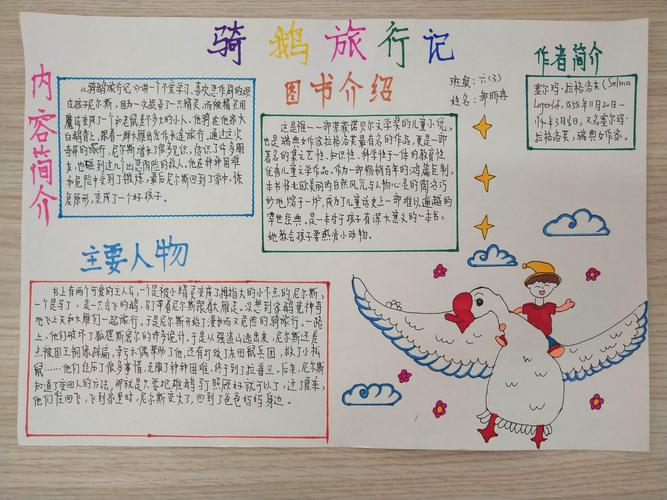 骑鹅旅行记
内容简介
《骑鹅旅行记》讲一个不爱学习、喜欢恶作剧的顽
皮孩子尼尔斯,因为一次捉弄了一只精灵,而被精灵用
魔法变成了一个和老鼠差不多大的小人。他骑在他家大
白鹅背上,跟着一群大雁出发作长途旅行。通过这次
奇异的旅行,尼尔斯增长了很多见识,结识了许多朋
友,也碰到过几个凶恶阴险的敌人。他在种种困难
和危险中受到了锻炼,最后尼尔斯回到了家中,恢
复原形,变成了一个好孩子。
图书介绍
这是惟一一部荣获诺贝尔文学奖的儿童小说,
也是瑞典女作家拉格洛夫最著名的作品,更是一部
著名的集文艺性、知识性、科学性于一体的教育性
优秀儿童文学作品。作为一部畅销百年的鸿篇巨制,
本书将北欧美丽的自然风光与人物心灵的陶冶巧
妙地熔于一炉,成为了儿童读史上一部难以逾越的
旷世经典。是一本对于孩子有深大意义的一本书,
她教会孩子要热爱小动物。
班级:六(3)
姓名:
作者简介
塞尔玛·拉格洛夫(Selma
Lagerlof,1858年11月20日-
1940年3月16日),又名塞尔玛·
拉格洛芙,瑞典女作家。
主要人物
书上有两个可爱的主人公,一个是被小精灵变成了拇指大的小不点的尼尔斯,
一个是马丁,是一只会飞的鹅,马丁带着尼尔斯跟着大雁走。没想到家鹅竟神奇
地飞上天和大雁们一起旅行。于是尼尔斯开始了漫长而又危险的骑旅行,一路
上,他们破坏了狐狸斯密尔的许多诡计。于是从强盗山逃出来,尼尔斯还差
点被国王铜像踩扁,幸亏木偶帮助了他,还有打败了灰田鼠兵团,救了小松
鼠……他们经历了很多事情,克服了种种困难,终于到了拉普兰。后来,尼尔斯
知道了变回人的方法,那就是只要把雄鹅马丁照顾好就可以了,过了夏末,
他们往回飞,飞到家里时,尼尔斯变大了,回到了爸爸妈妈身边。